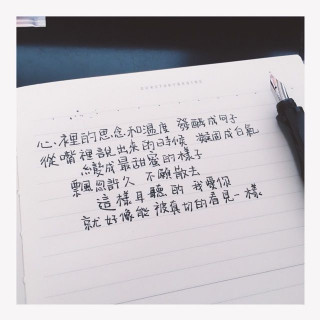 心裡的思念和溫度 發酵成句子
從嘴裡說出來的時候 凝固成白氣
變成最甜蜜的樣子
飄忽許久 不願散去
這樣耳聽的 我愛你
就好像能被真切的看見一樣